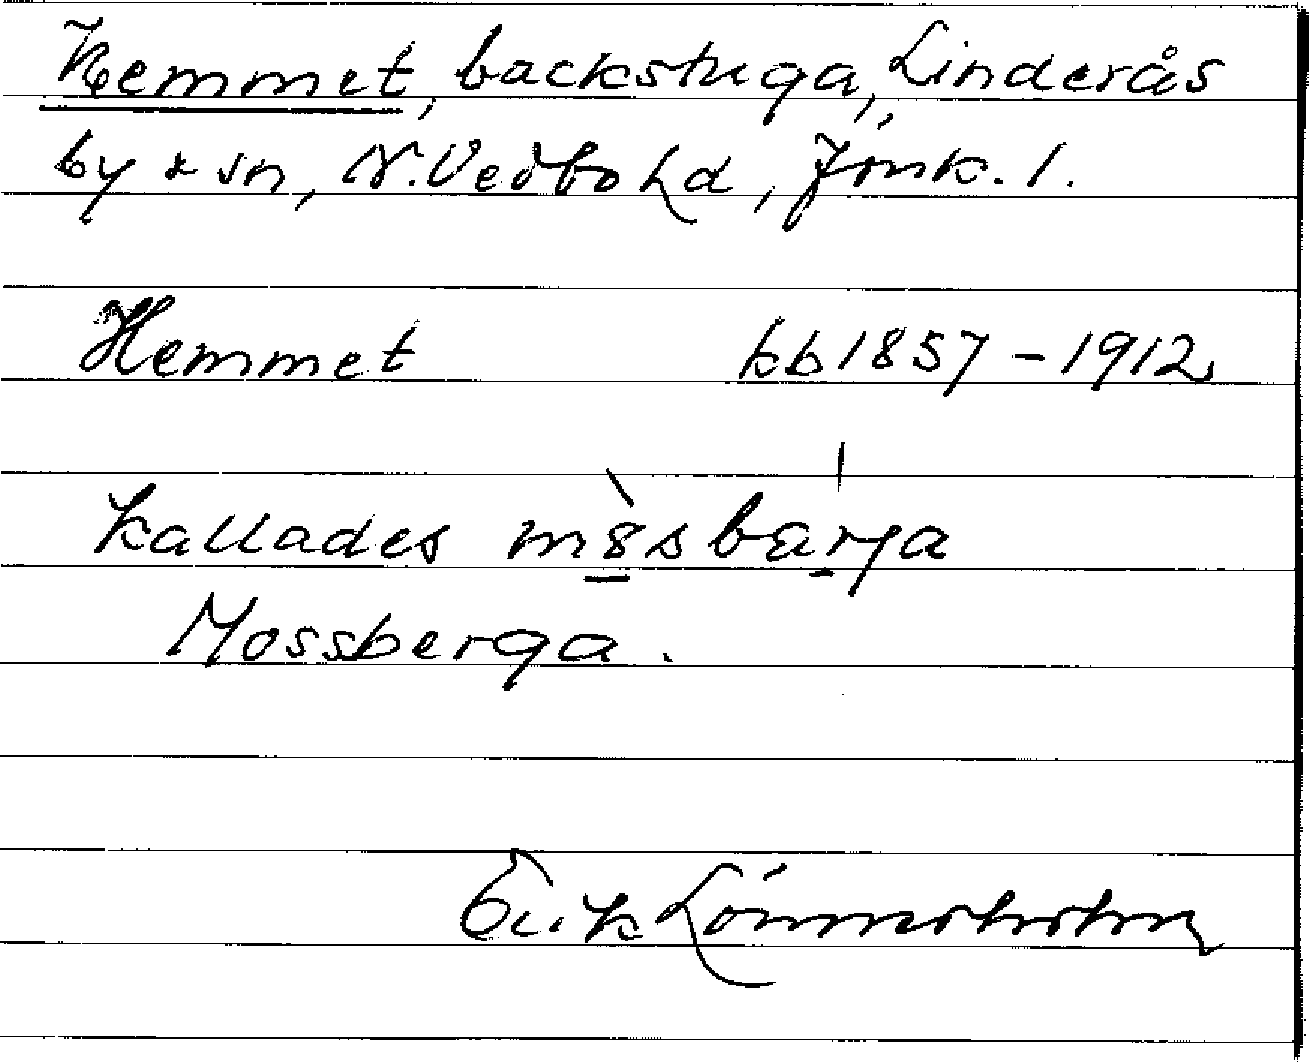 Hemmet, backstuga, Linderås
by & sn, N. Vedbo hd, Jönk. l.
Hemmet kb 1857-1912
Kallades
Mossberga.
Erik